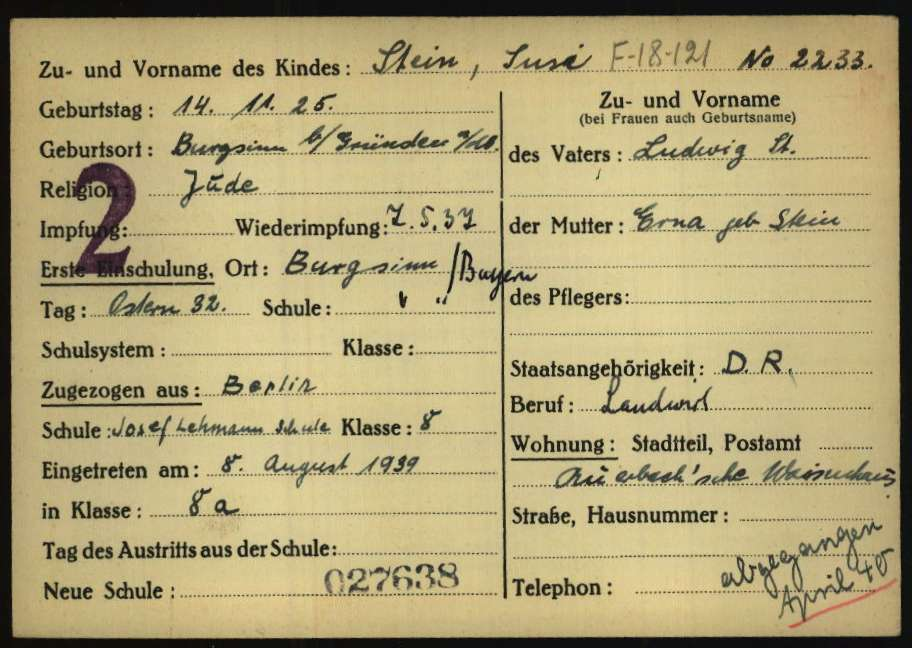 Zu- und Vorname des Kindes: Stein, Susi F-18-121 No 2233.
Geburtstag: 14. 11. 25.
Geburtsort: Burgsinn b/
Religion: Jüde
Impfung: Wiederimpfung: 7.5.37
2
Erste Einschulung, Ort: Burgsinn /Bayern
Tag: Ostern 32. Schule: " "
Schulsystem: Klasse:
Zugezogen aus: Berlin
Schule: Josef Lehmann Schule Klasse: 8
Eingetreten am: 8. August 1939
in Klasse: 8a
Tag des Austritts aus der Schule:
Neue Schule: 027638
Zu- und Vorname
(bei Frauen auch Geburtsname)
des Vaters: Ludwig St.
der Mutter: Erna geb Stein
des Pflegers:
Staatsangehörigkeit: D. R.
Beruf: Landwirt
Wohnung: Stadtteil, Postamt
Auerbach'sche Waisenhaus
Straße, Hausnummer:
Telephon:
abgegangen
April 40